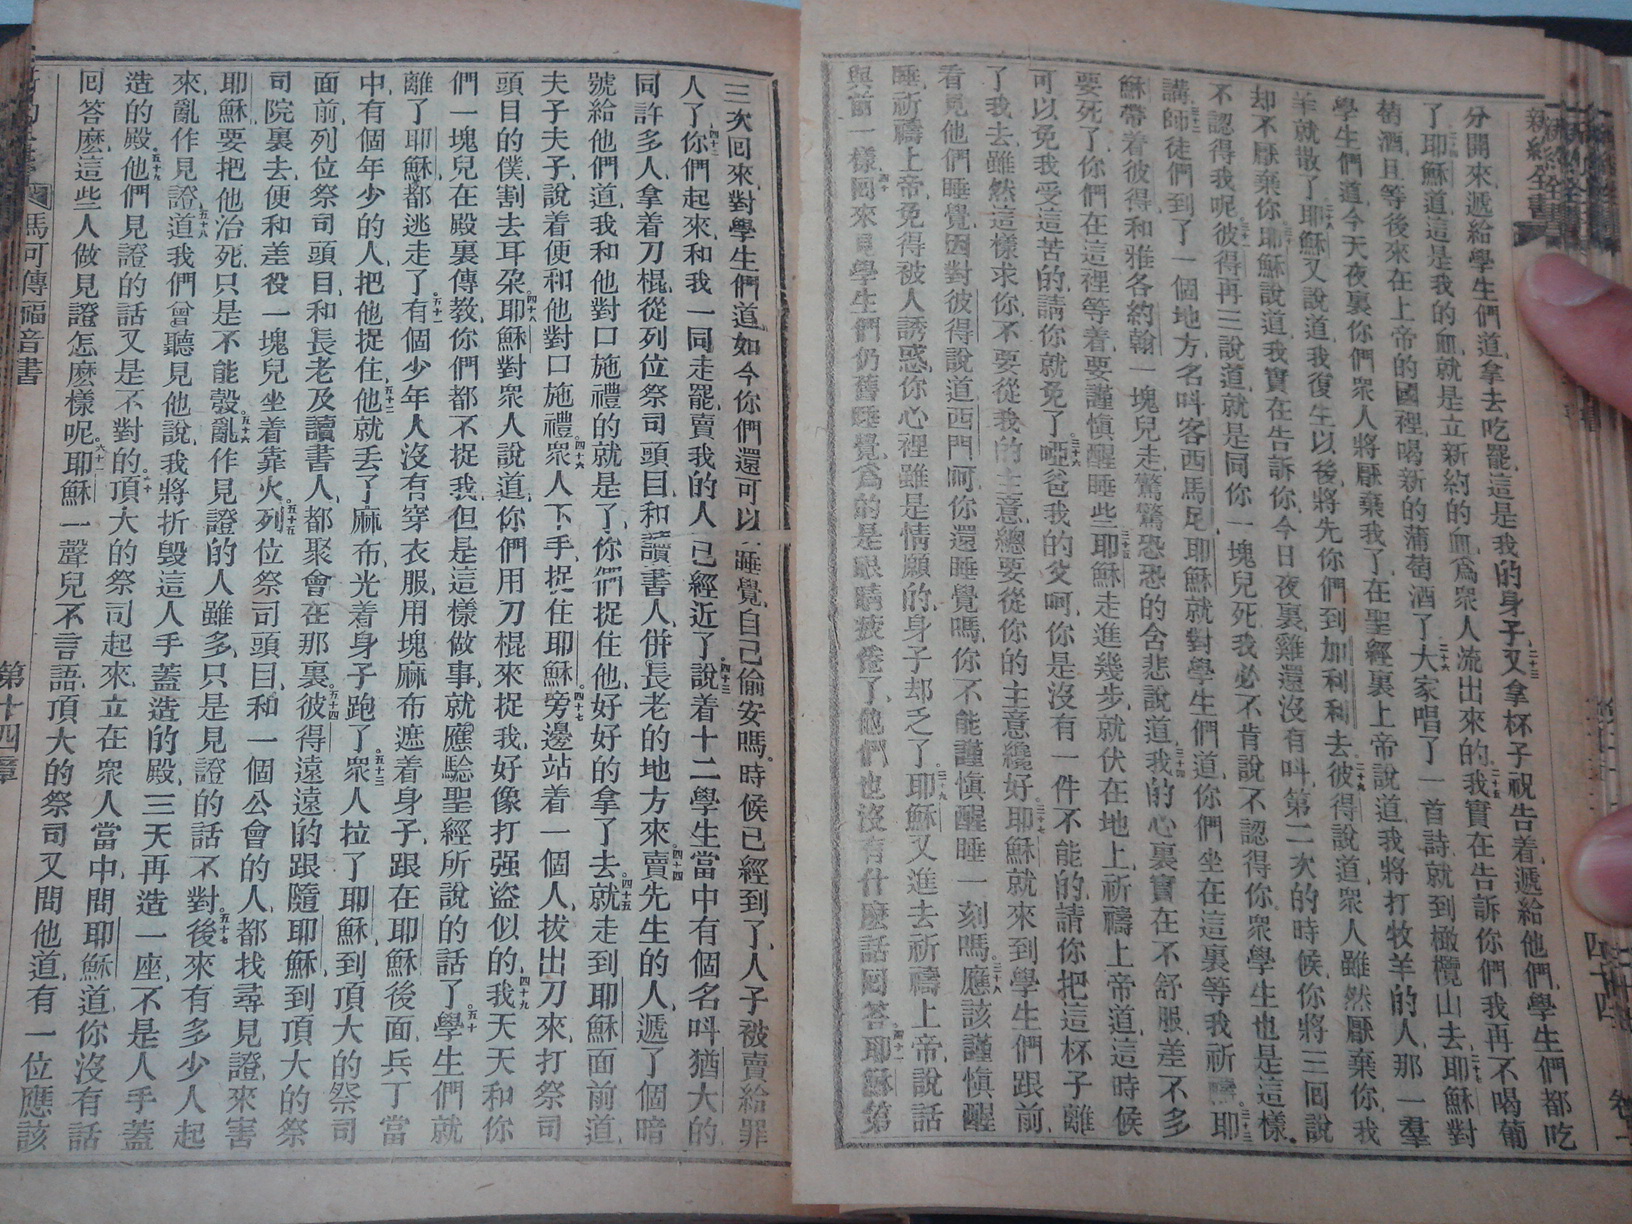 新約全書
分開來遞給學生們道拿去吃罷這是我的身子又拿杯子祝告着遞給他們學生們都吃
了耶穌道這是我的血就是立新約的血爲眾人流出來的我實在告訴你們我再不喝葡
萄酒且等後來在上帝的國裡喝新的葡萄酒了大家唱了一首詩就到橄欖山去耶穌對
學生們道今天夜裏你們衆人將厭棄我了在聖經裏上帝說道我將打牧羊的人那一羣
羊就散了耶穌又說道我復生以後將先你們到加利利去彼得說道衆人雖然厭棄你我
却不厭棄你耶穌說道我實在告訴你今日夜裏雞還沒有呌第二次的時候你將三回說
不認得我呢彼得再三說道就是同你一塊兒死我必不肯說不認得你衆學生也是這樣
講師徒們到了一個地方名呌客西馬尼耶穌就對學生們道你們坐在這裏等我祈禱耶
穌帶着彼得和雅各約翰一塊兒走驚驚恐恐的含悲說道我的心裏實在不舒服差不多
要死了你們在這裡等着要謹慎醒睡些耶穌走進幾步就伏在地上祈禱上帝道這時候
可以免我受這苦的請你就免了啞爸我的父呵你是沒有一件不能的請你把這杯子離
了我去雖然這樣求你不要從我的主意總要從你的主意纔好耶穌就來到學生們跟前
看見他們睡覺因對彼得說道西門呵你還睡覺嗎你不能謹慎醒睡一刻嗎應該謹慎醒
睡祈禱上帝免得被人誘惑你心裡雖是情願的身子却乏了耶穌又進去祈禱上帝說話
與前一樣回來見學生們仍舊睡覺爲的是眼睛疲倦了他們也沒有什麼話回答耶穌第
三次回來對學生們道如今你們還可以睡覺自己偷安嗎時候已經到了人子被賣給罪
人了你們起來和我一同走罷賣我的人已經近了說着十二學生當中有個名呌猶大的
同許多人拿着刀棍從列位祭司頭目和讀書人併長老的地方來賣先生的人遞了個暗
號給他們道我和他對口施禮的就是了你們捉住他好好的拿了去就走到耶穌面前道
夫子夫子說着便和他對口施禮衆人下手捉住耶穌旁邊站着一個人拔出刀來打祭司
頭目的僕割去耳朶耶穌對衆人說道你們用刀棍來捉我好像打强盜似的我天天和你
們一塊兒在殿裏傳教你們都不捉我但是這樣做事就應驗聖經所說的話了學生們就
離了耶穌都逃走了有個少年人沒有穿衣服用塊麻布遮着身子跟在耶穌後面兵丁當
中有個年少的人把他捉住他就丟了麻布光着身子跑了衆人拉了耶穌到頂大的祭司
面前列位祭司頭目和長老及讀書人都聚會在那裏彼得遠遠的跟隨耶穌到頂大的祭
司院裏去便和差役一塊兒坐着靠火列位祭司頭目和一個公會的人都找尋見證來害
耶穌要把他治死只是不能彀亂作見證的人雖多只是見證的話不對後來有多少人起
來亂作見證道我們曾聽見他說我將折毀這人手蓋造的殿三天再造一座不是人手蓋
造的殿他們見證的話又是不對的頂大的祭司起來立在衆人當中問耶穌道你沒有話
回答麽這些人做見證怎麽樣呢耶穌一聲兒不言語頂大的祭司又問他道有一位應該
馬可傳福音書 第十四章